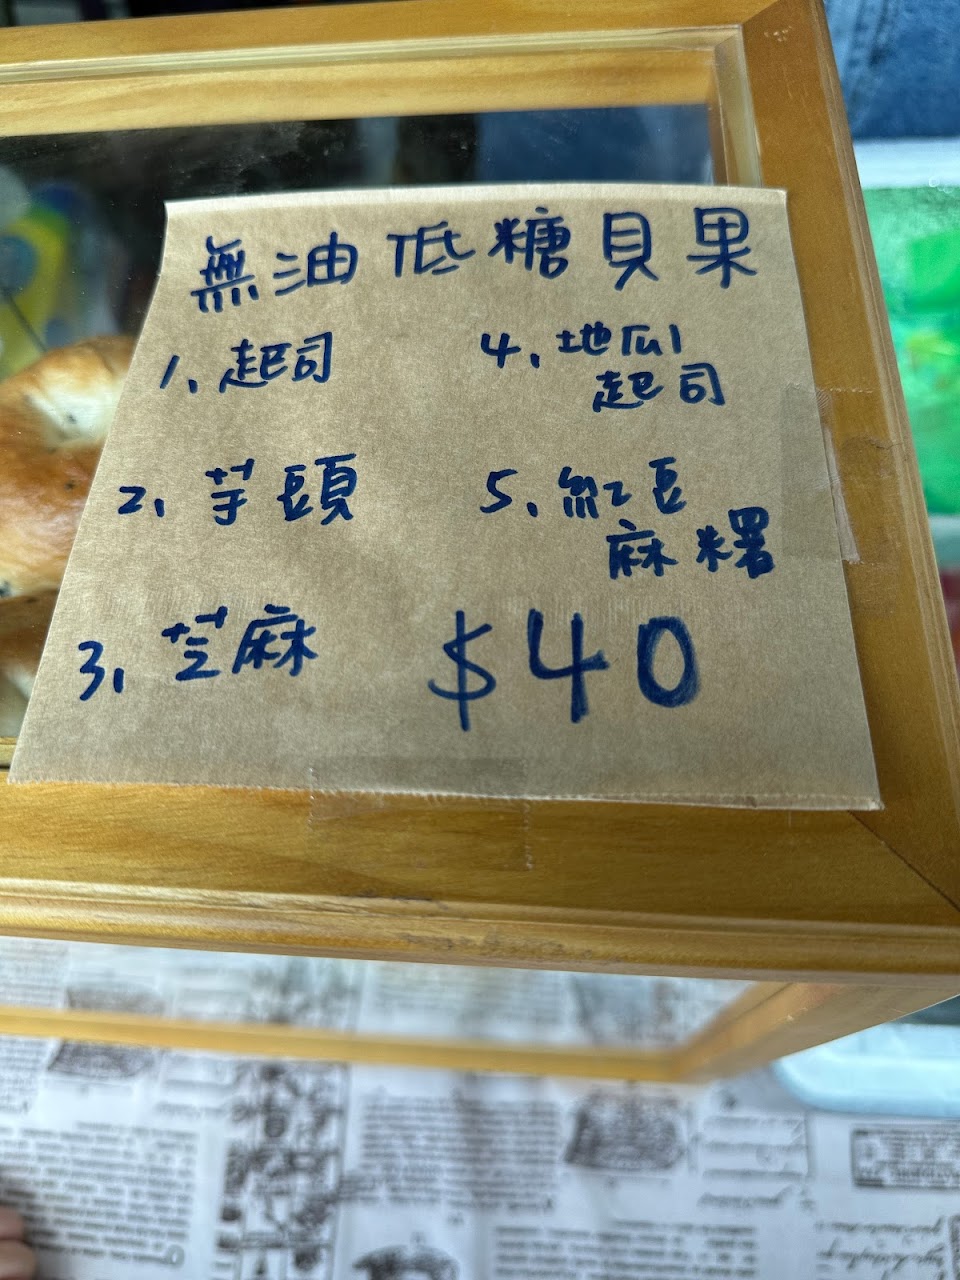 無油低糖貝果
1、起司
2、芋頭
3、芝麻
4、地瓜
起司
5、紅豆
麻糬
$40